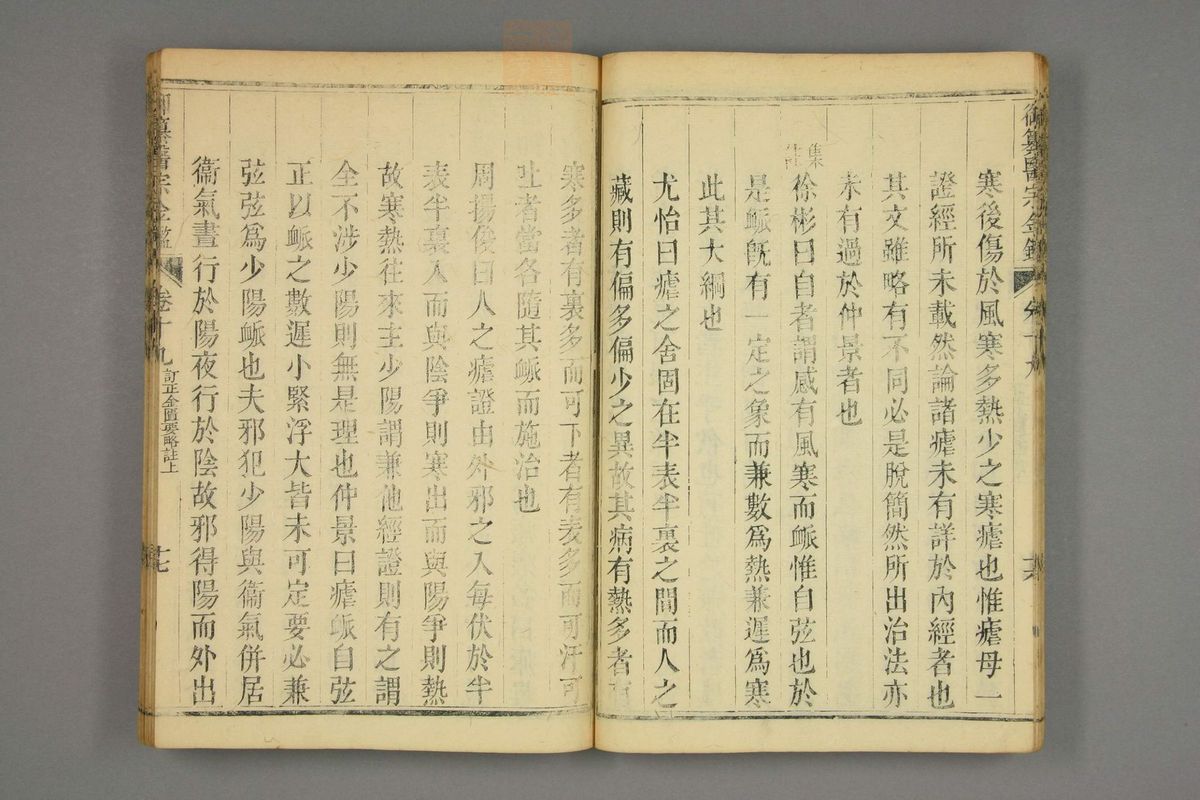 御纂醫宗金鑑 卷十九
寒後傷於風寒多熱少之寒瘧也惟瘧母一
證經所未載然論諸瘧未有詳於內經者也
其文雖略有不同必是脫簡然所出治法亦
未有過於仲景者也
集註
徐彬曰自者謂感有風寒而脈惟自弦也於
是脈旣有一定之象而兼數爲熱兼遲爲寒
此其大綱也
尤怡曰瘧之舍固在半表半裏之間而人之
藏則有偏多偏少之異故其病有熱多者有
寒多者有裏多而可下者有表多而可汗可
吐者當各隨其脈而施治也
周揚俊曰人之瘧證由外邪之入每伏於半
表半裏入而與陰爭則寒出而與陽爭則熱
故寒熱往來主少陽謂兼他經證則有之謂
全不涉少陽則無是理也仲景曰瘧脈自弦
正以脈之數遲小緊浮大皆未可定要必兼
弦弦爲少陽脈也夫邪犯少陽與衞氣併居
衞氣晝行於陽夜行於陰故邪得陽而外出
御纂醫宗金鑑 卷十九 訂正金匱要略註上 十七